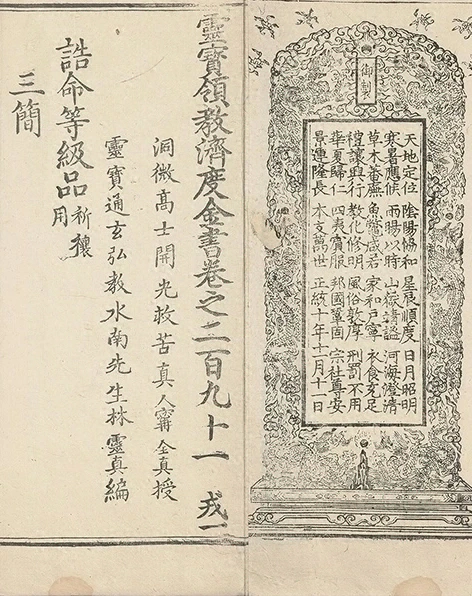 御製
天地定位 陰陽協和 星辰順度 日月昭明
寒暑應候 雨暘以時 山嶽靖謐 河海澄清
草木蕃廡 魚鱉咸若 家和戶寧 衣食充足
禮讓興行 教化修明 風俗敦厚 刑罰不用
華夏歸仁 四夷賓服 邦國鞏固 宗社尊安
景運隆長 本支萬世 正統十年十一月十一日
靈寶領教濟度金書卷之二百九十一 戎一
洞微高士開光救苦真人甯全真授
靈寶通玄弘教水南先生林靈真編
誥命等級品 祈禳用
三簡